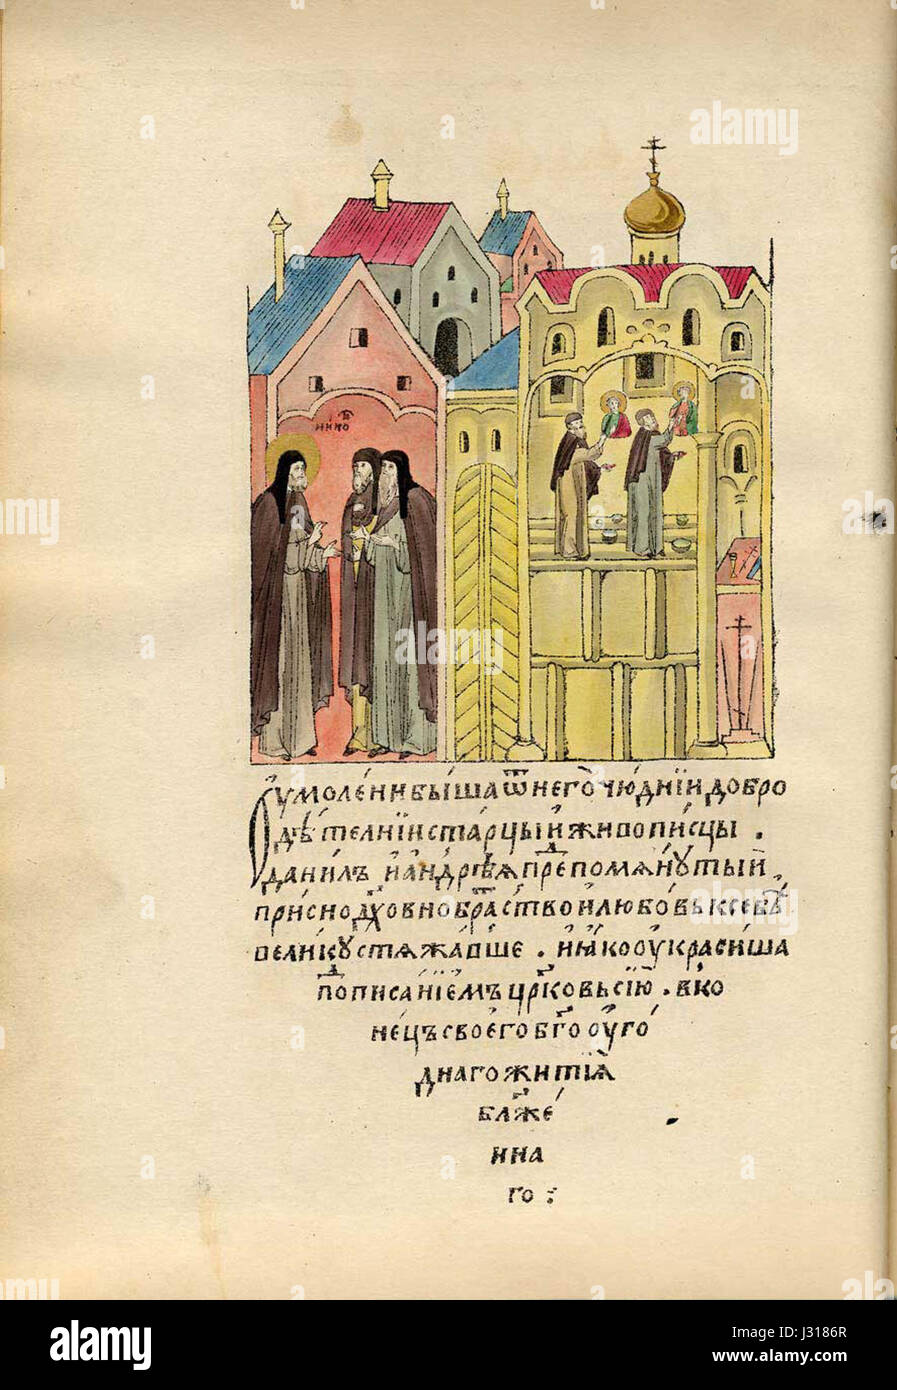 нико
Оумолени быша ѿ него чюднїи добро
дѣтелнїи старцы и живописцы .
данилъ и андрѣя препомянутый
присно дховно братство и любовь к себѣ
велику стяжавше . и яко украсиша
пописанїемъ црковь сїю . в ко
нецъ своего бгооуго
днаго житїя
блже
нна
го :
alamy
a
alamy
Image ID: J3186R
www.alamy.com